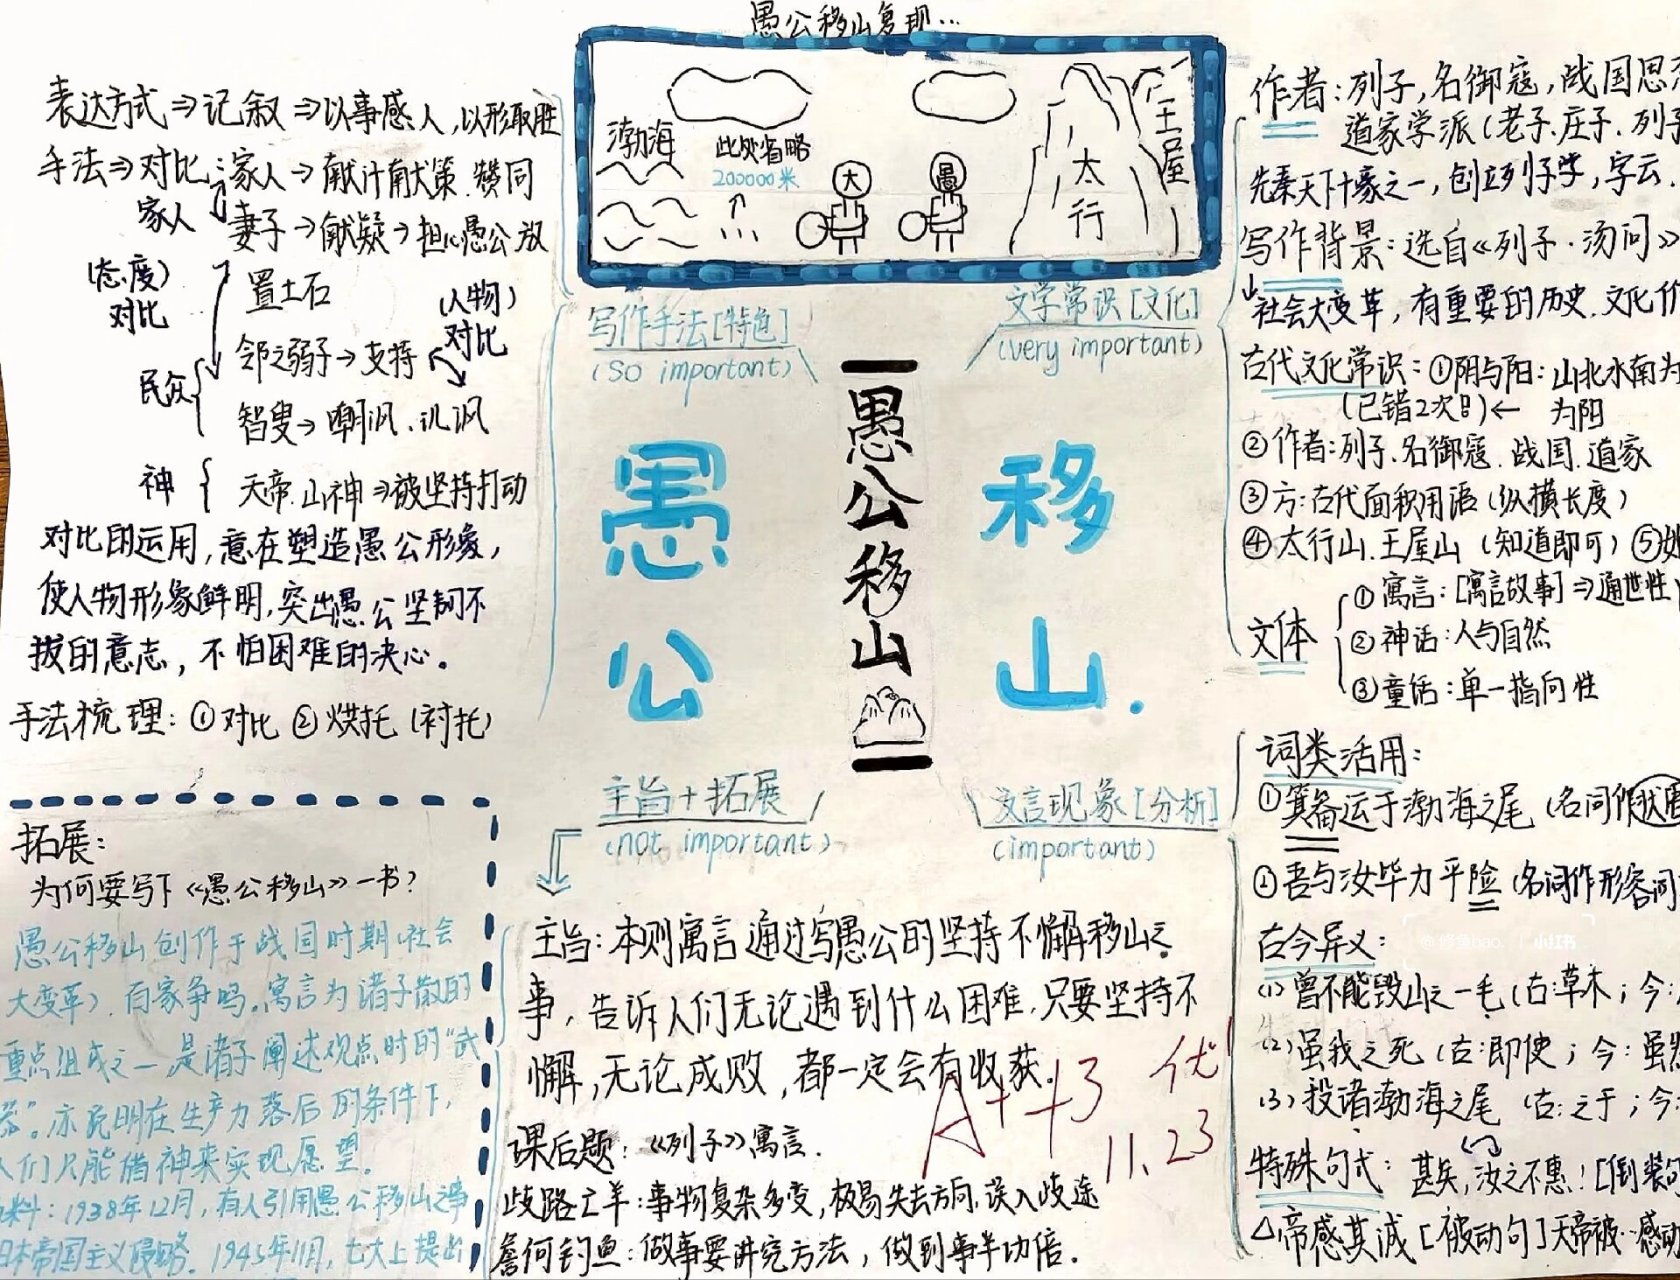 愚公移山复现…
渤海
此处省略
200000米
大
愚
太行
王屋
表达方式⇒记叙⇒以事感人,以形取胜
手法⇒对比:家人→献计献策.赞同
家人
妻子→献疑→担心愚公放
(态度)
对比
置土石
(人物)
对比
邻之弱子→支持
民众
智叟→嘲讽.讥讽
神
天帝.山神⇒被坚持打动
对比的运用,意在塑造愚公形象,
使人物形象鲜明,突出愚公坚韧不
拔的意志,不怕困难的决心。
手法梳理:①对比 ②烘托(衬托)
写作手法[特色]
(so important)
文学常识[文化]
(very important)
愚公移山
愚公
移山.
主旨+拓展
(not important)
文言现象[分析]
(important)
作者:列子,名御寇,战国思
道家学派(老子.庄子.列子
先秦天下十豪之一,创立列子学,字云.
写作背景:选自《列子·汤问》
社会大变革,有重要的历史.文化价
古代文化常识:①阴与阳:山北水南为
(已错2次!!)← 为阳
②作者:列子.名御寇.战国.道家
③方:古代面积用语(纵横长度)
④太行山.王屋山(知道即可)⑤
文体
①寓言:[寓言故事]⇒通世性
②神话:人与自然
③童话:单一指向性
词类活用:
①箕畚运于渤海之尾(名词作状语
②吾与汝毕力平险(名词作形容词
古今异义:
(1)曾不能毁山之一毛(古:草木;今:
(2)虽我之死(古:即使;今:虽然
(3)投诸渤海之尾(古:之于;今:
特殊句式:甚矣,汝之不惠![倒装句
△帝感其诚[被动句]天帝被…感动
拓展:
为何要写下《愚公移山》一书?
愚公移山创作于战国时期(社会
大变革).百家争鸣。寓言为诸子散的
重点组成之一.是诸子阐述观点时的“武
器”。亦说明在生产力落后的条件下,
人们只能借神来实现愿望。
料:1938年12月,有人引用愚公移山之事
日本帝国主义侵略.1945年11月,七大上提出
主旨:本则寓言通过写愚公的坚持不懈移山之
事,告诉人们无论遇到什么困难.只要坚持不
懈,无论成败,都一定会有收获.
A++3 优
11.23
课后题:《列子》寓言.
歧路亡羊:事物复杂多变,极易失去方向.误入歧途
詹何钓鱼:做事要讲究方法,做到事半功倍.
小红书